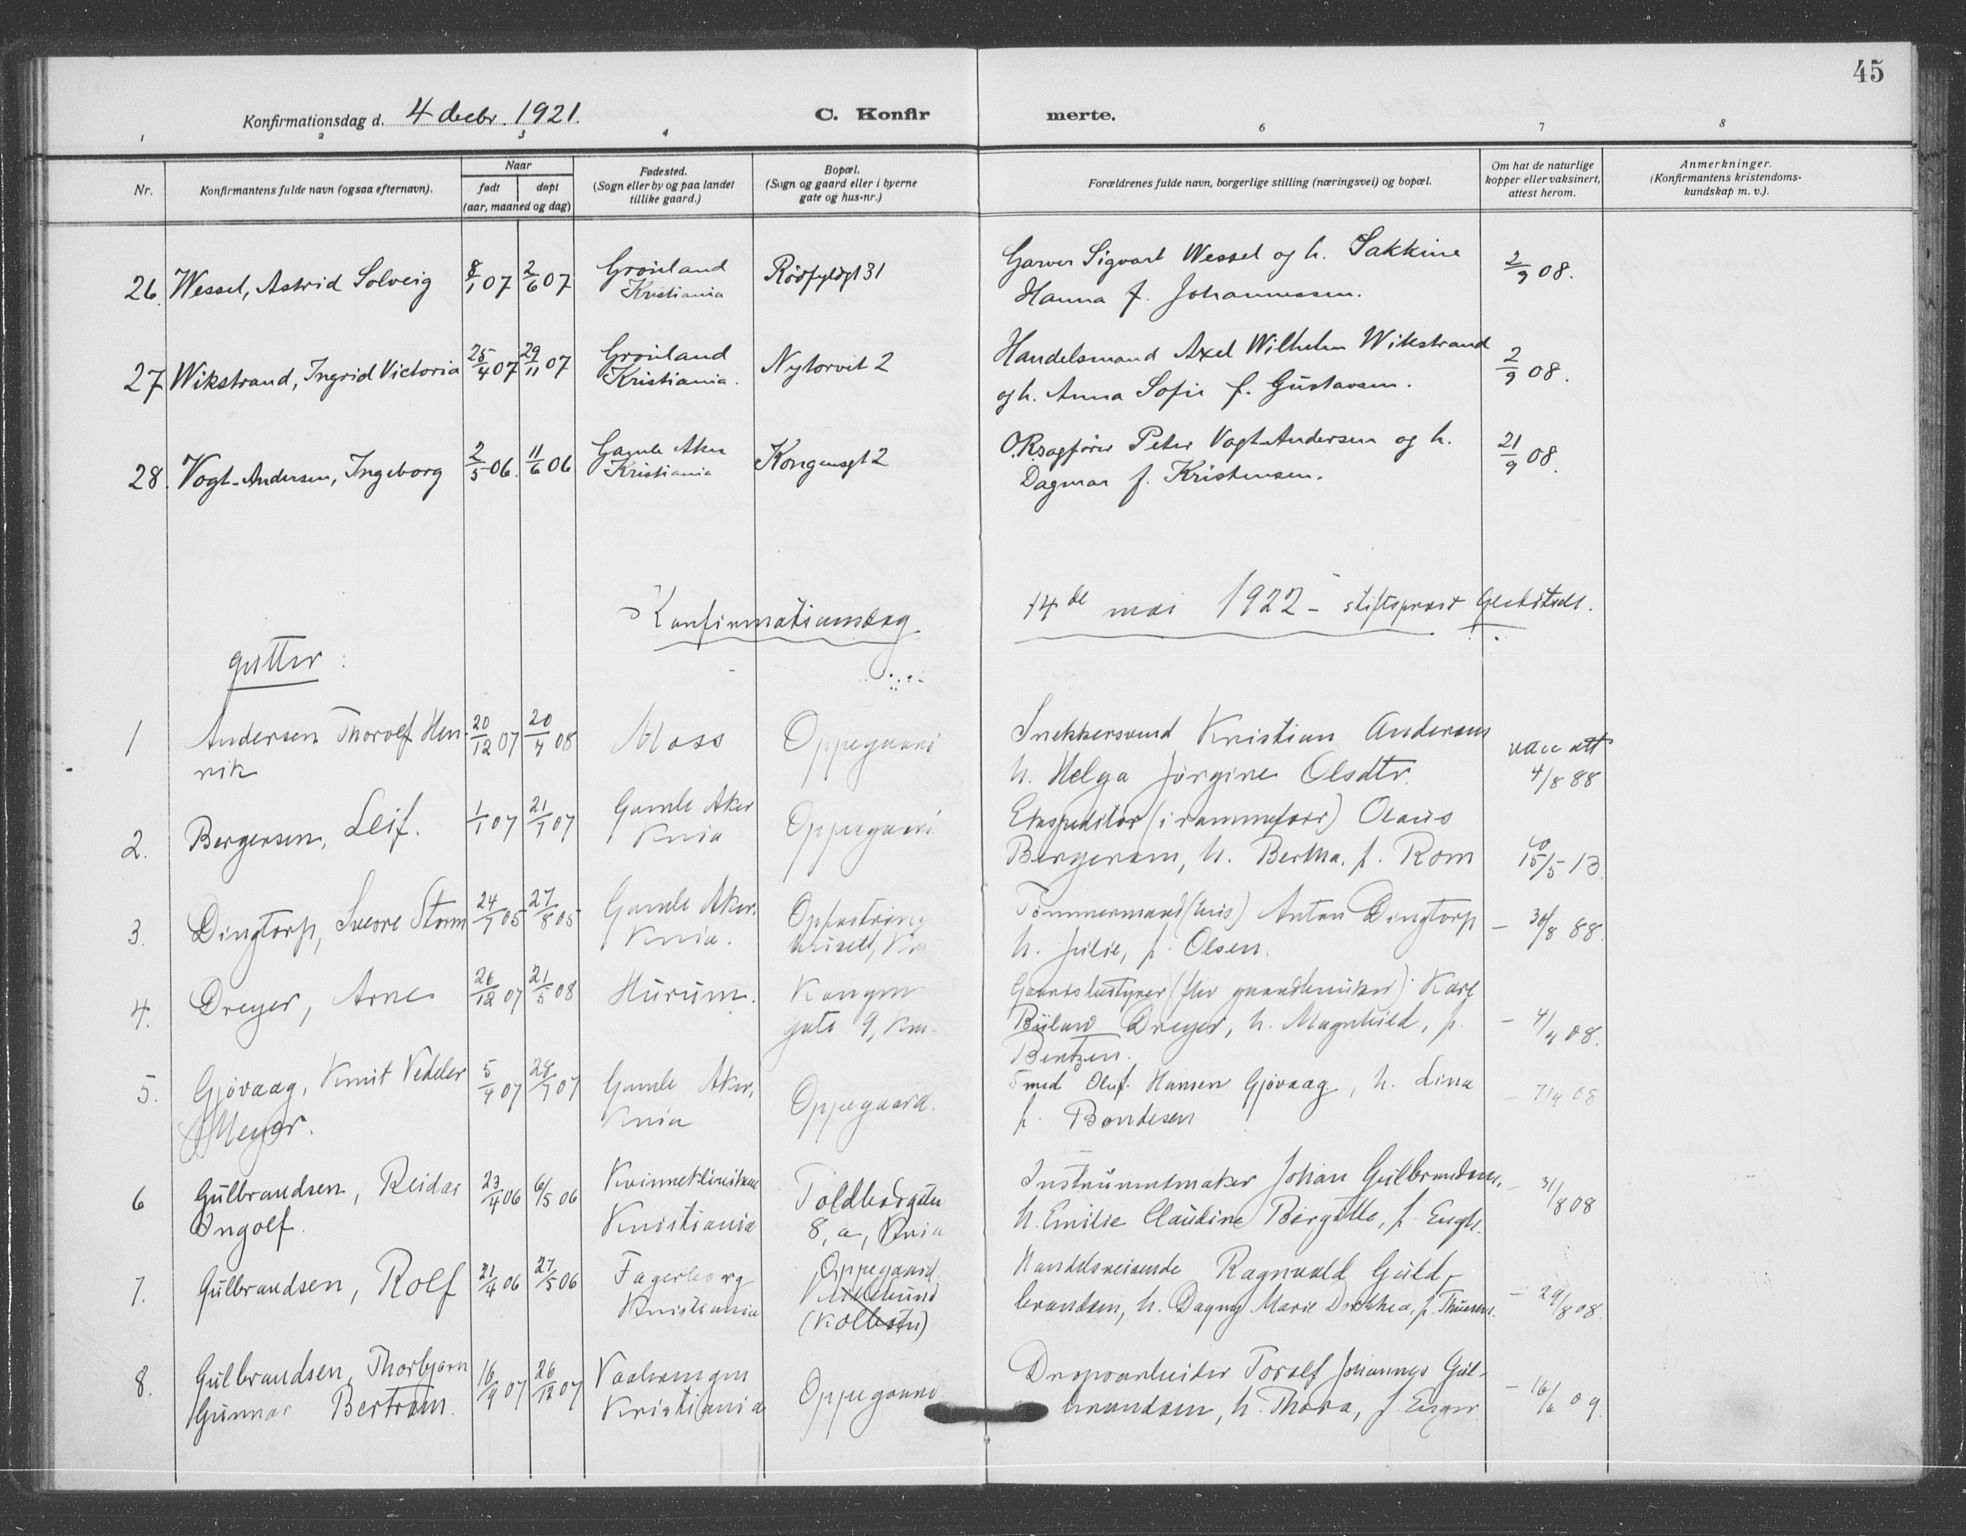 45
Konfirmationsdag d. 4 decbr. 1921.
C. Konfir merte.
1 2 3 4 6 7 8
Nr.
Konfirmantens fulde navn (ogsaa efternavn).
Naar
født
døpt
(aar, maaned og dag)
Fødested.
(Sogn eller by og paa landet
tillike gaard.)
Bopæl.
(Sogn og gaard eller i byerne
gate og hus-nr.)
Forældrenes fulde navn, borgerlige stilling (næringsvei) og bopæl.
Om hat de naturlige
kopper eller vaksinert,
attest herom.
Anmerkninger.
(Konfirmantens kristendoms-
kundskap m. v.).
26. Wessel, Astrid Solveig 8/1 07 2/6 07 Grønland Rødfyldgt 31 Garver Sigvart Wessel og h. Sakkine 2/9 08.
Kristiania Hanna f. Johannessen.
27 Wikstrand, Ingrid Victoria 25/4 07 29/11 07 Grønland Nytorvet 2 Handelsmand Axel Wilhelm Wikstrand 2/9 08.
Kristiania. og h. Anna Sofie f. Gustavsen.
28. Vogt-Andersen, Ingeborg 2/5 06. 11/6 06 Gamle Aker Kongensgt 2 O.R.sagfører Peter Vogt-Andersen og h. 21/9 08.
Kristiania Dagmar f. Kristensen.
Konfirmationsdag 14de mai 1922 - stiftsprost
gutter:
1 Andersen Thorolf Hen- 20/12 07 20/4 08 Moss Oppegaard Snekkersvend Kristian Andersen
rik h. Helga Jørgine Olsdtr. 4/8 88
2. Bergersen, Leif. 1/1 07 21/7 07 Gamle Aker Oppegaard Ekspeditør (i rammeforr) Olaus
Knia Bergersen, h. Bertha, f. Rom 15/5 13.
3. Dingtorp, Sverre Storm 24/7 05 27/8 05 Gamle Aker. Tømmermand (hus) Anton Dingtorp - 30/8 88.
Knia. h. Julie, f. Olsen.
4. Dreyer, Arne 26/12 07 21/5 08 Hurum. Kongens Karl
gate 9, Kra. Dreyer, h. Magnhild, f. - 4/9 08.
Bentzen.
5. Gjøvaag, Knut Vedeler 5/4 07 28/7 07 Gamle Aker, Oppegaard. Smed Oluf Hansen Gjøvaag, h. Lina - 7/9 08
Meyer. Knia f. Bondesen
6 Gulbrandsen, Reidar 23/4 06 6/5 06 Kvinneklinikken Toldbodgaten Instrumentmaker Johan Gulbrandsen. - 31/8 08
Ingolf. Kristiania 8, a, Knia h. Emilie Claudine Birgitte, f. Engh.
7. Gulbrandsen, Rolf 21/4 06 27/5 06 Fagerborg Oppegaard Handelsreisende Ragnvald Guld-
Kristiania (Kolbotn) brandsen, h. Dagny Marie Dorthea, f. Thuesen. - 29/8 08.
8. Gulbrandsen, Thorbjørn 16/9 07 26/12 07 Vaalerengen Oppegaard Dropsarbeider Toralf Johannes Gul- - 16/6 09.
Gunnar Bertram. Kristiania brandsen, h. Thora, f. Enger